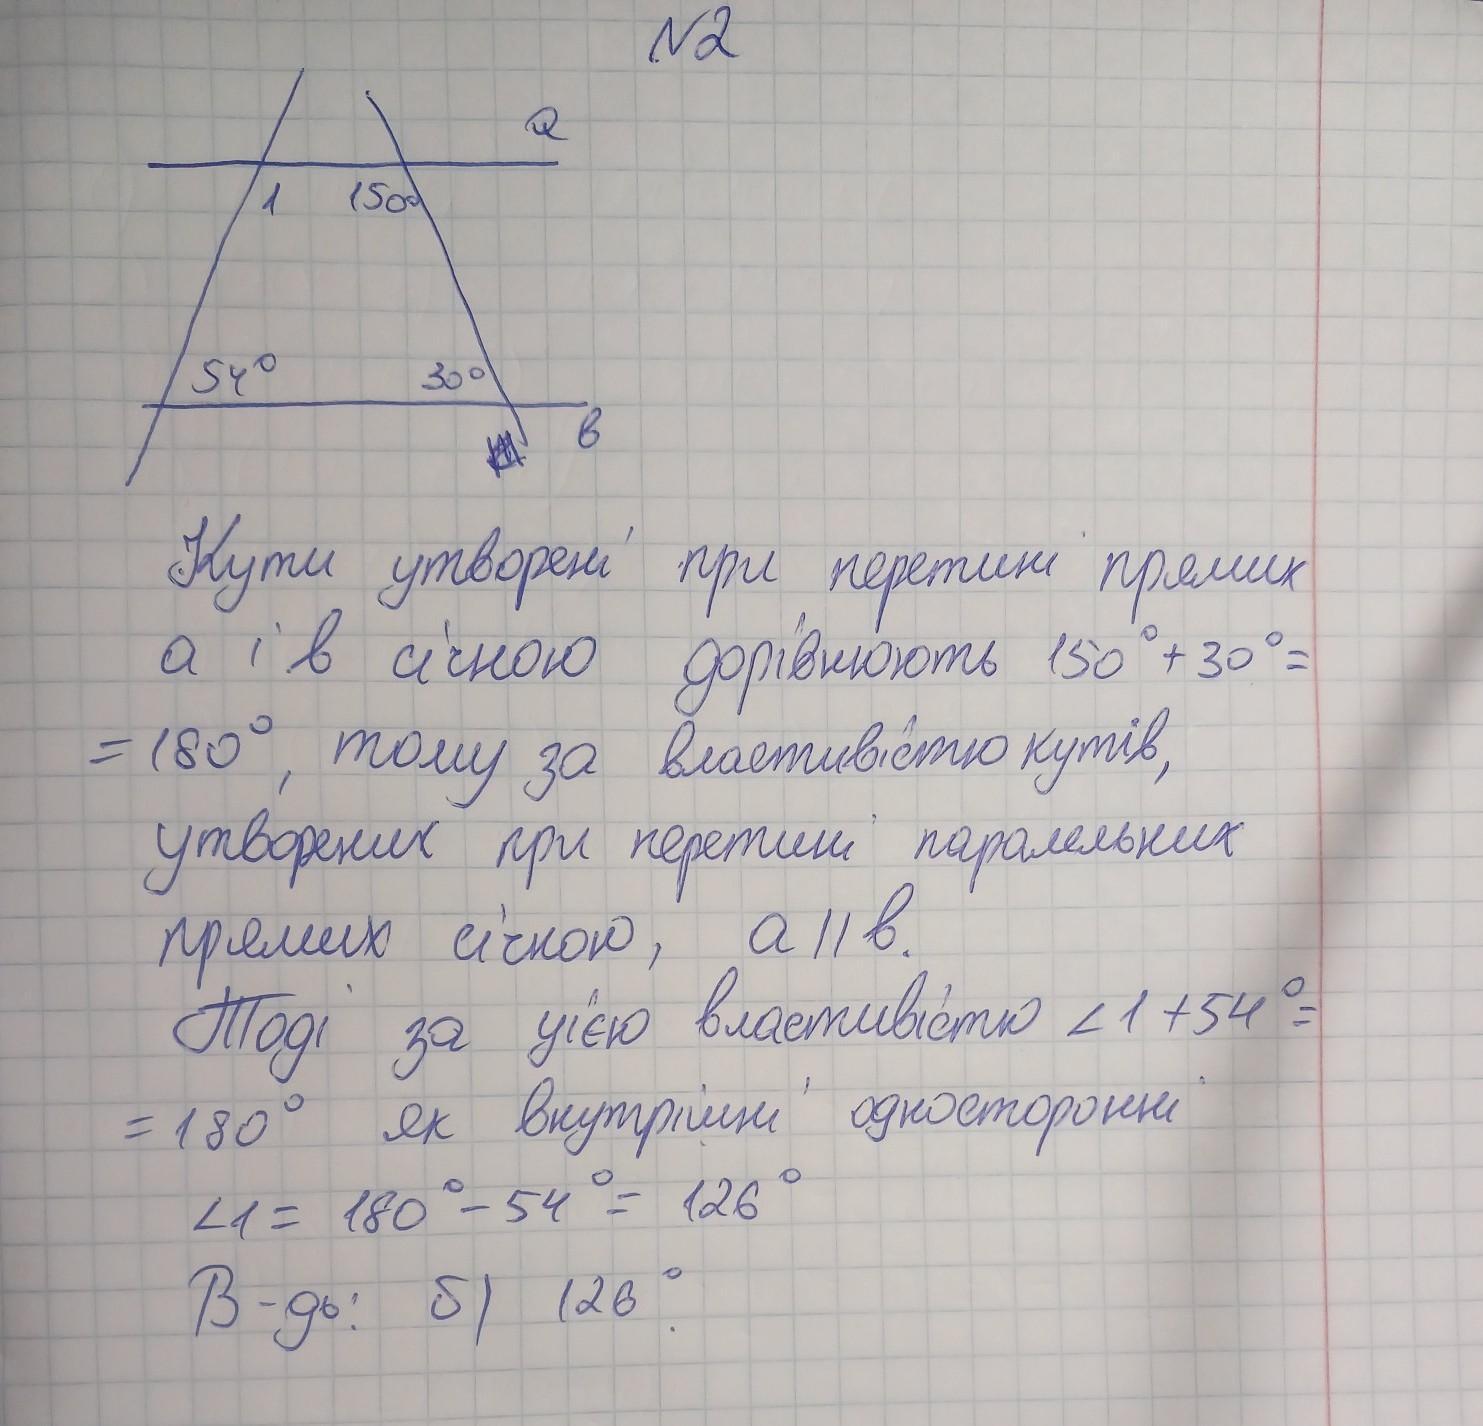 N2
a
1 150°
54° 30°
в
Кути утворені при перетині прямих
а і в січною дорівнюють 150° + 30° =
= 180°, тому за властивістю кутів,
утворених при перетині паралельних
прямих січною, а || в.
Тоді за цією властивістю ∠1 + 54° =
= 180° як внутрішні односторонні
∠1 = 180° - 54° = 126°
В-дь: б) 126°.